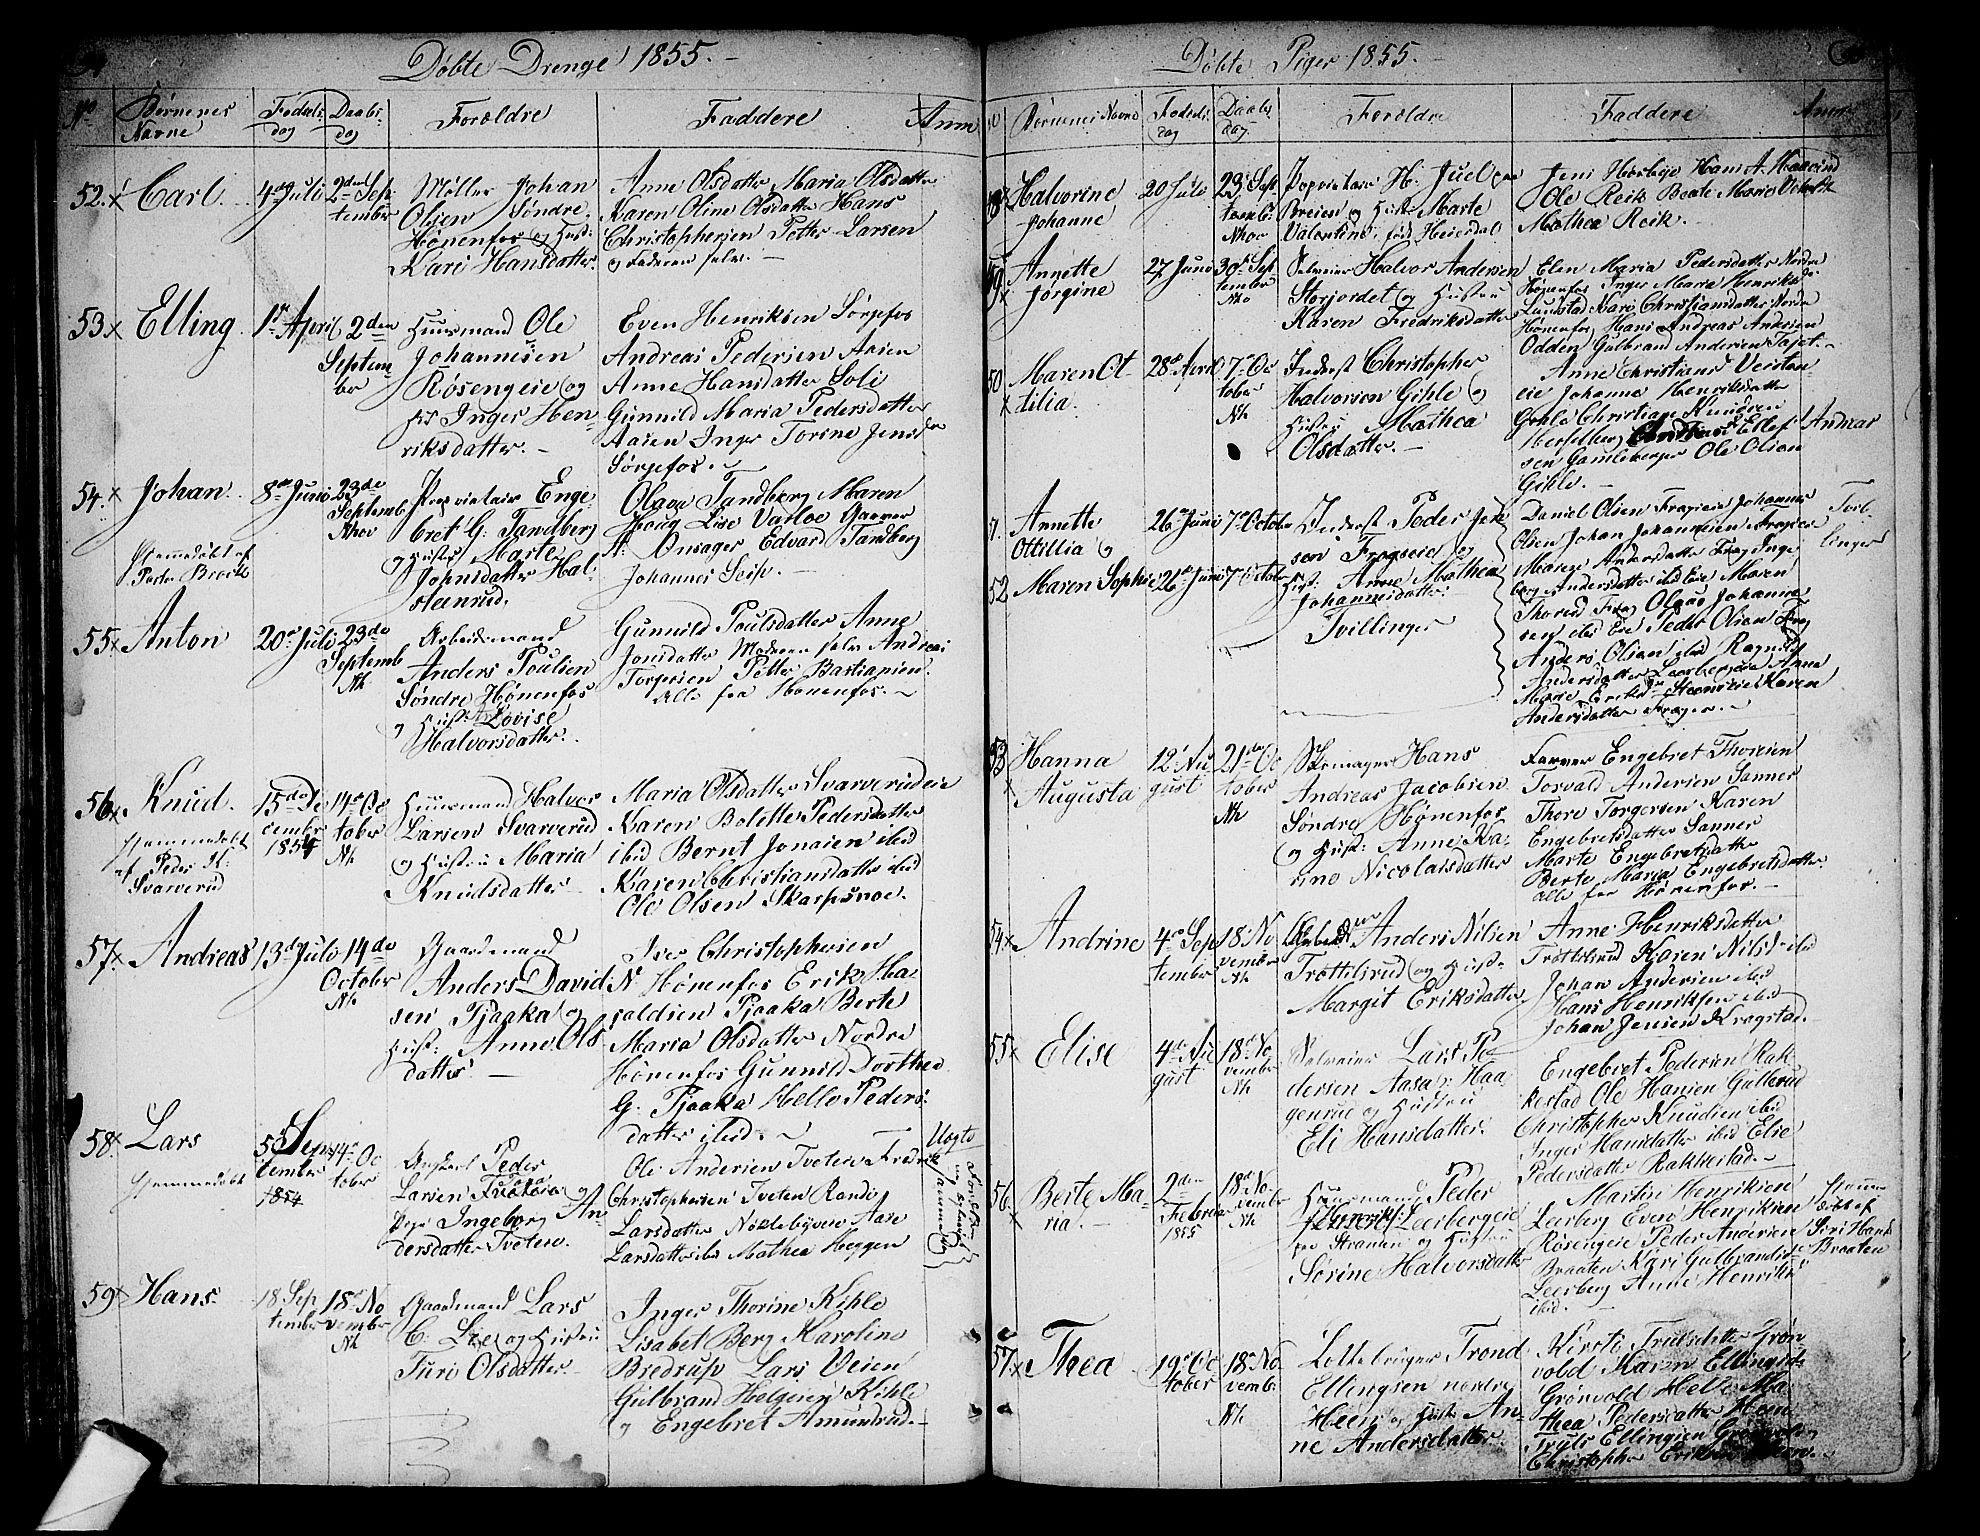 Døbte Drenge 1855.
No
Børnenes Navne
Fødsels dag
Daabs dag
Forældre
Faddere
Anm
52. Carl.
4de Juli
2den Sep
tember
Møller Johan
Olsen Søndre
Hønenfos og Hust:
Kari Hansdatter.
Anne Olsdatter Maria Olsdatter
Karen Oline Olsdatter Hans
Christophersen Petter Larsen
og Faderen selv. —
53 Elling.
1ste April
2den
Septem
ber
Huusmand Ole
Johannesen
Rosengeie og
Inger Hen
riksdatter. —
Even Henriksen Sørpefos
Andreas Pedersen Aasen
Anne Hansdatter Soli
Gunnild Maria Pedersdatter
Aasen Inger Torine Jensda
Sørpefos.
54. Johan.
Hjemmedøbt af
Peder Braate
8de Juni
23de
Septemb
Nhov
Proprietair Enge
bret G: Tandberg
og Hustru Marte
Johnsdatter Hal
steinrud.
Olava Tandberg Maren
Houg Lise Varloe Garver
A: Onsager Edvard Tandberg
Johannes Seip. —
55 Anton
20de Juli
23de
Septemb
Nh
Arbeidsmand
Anders Poulsen
Søndre Hønenfos
og Hust: Lovise
Halvorsdatter.
Gunnild Poulsdatter Anne
Jonsdatter Moderen selv Andreas
Torgersen Petter Bastiansen.
Alle fra Hønenfos. —
56 Knud.
Hjemmedøbt
af Peder H:
Svarverud
15de De
cember
1854
14de Oc
tober
Nh
Huusmand Halvor
Larsen Svarverud
og Hustru Maria
Knudsdatter
Maria Olsdatter Svarverudeie
Karen Bolette Pedersdatter
ibid Bernt Jonsen ibid
Karen Christiansdatter ibid
Ole Olsen Skarpsnoe.
57. Andreas
13de Juli
14de
October
Nh
Gaardmand
Anders David
sen Pjaaka og
Hust: Anne Ols
datter. —
Iver Christophersen
N Hønenfos Erik Ha
raldsen Pjaaka Berte
Maria Olsdatter Nordre
Hønenfos Gunnild Dorthea
G. Pjaaka Helle Peders
datter ibid.
58. Lars
Hjemmedøbt
5 Sep
tember
1854
14de Oc
tober
Ungkarl Peder
Larsen og
Pige Ingeborg An
dersdatter Tveten.
Ole Andersen Tveten Fredrik
Christophersen Tveten Randi
Larsdatter Aase
Larsdatter ibid Mathea Heggen
Uægte
59 Hans.
18 Sep
tember
18de No
vember
Nh
Gaardmand Lars
C. Lie og Hustru
Turi Olsdatter.
Inger Thorine Kihle
Lisabet Berg Karoline
Bredrup Lars Veien
Gulbrand Helgesen Kihle
og Engebret Amundrud. —
Døbte Piger 1855.
Børnenes Navne
Fødsels dag
Daabs dag
Forældre
Faddere
Anm
Halvorine
Johanne
20 Juli
23 Sep
temb:
Nhov
Proprietair H. Juel
Breien og Hust: Marte
Valentine, født Heierdal
Ole Reik Beate Marie
Mathea Reik. —
Annette
Jørgine
27 Juni
30te Sep
tember
Nho
Selveier Halvor Andersen
Storjordet og Hustru
Karen Fredriksdatter
Elen Maria Pedersdatter Nordre
Hønenfos Inger Marie Henriksda
Lunstad Kari Christiansdatter Nordre
Hønenfos Hans Andreas Andersen
Odden Gulbrand Andersen
50 Maren Ot
tilia.
28de April
7de Oc
tober
Nh
Inderst Christopher
Halvorsen Gihle og
Hustru Mathea
Olsdatter. —
Anne Christians
eie Johanna Henriksdatter
Gihle Christian Knudsen
Ellef
sen Gamleberger Ole Olsen
Gihle. —
Annette
Ottillia og
26de Juni
7de Octobr
52 Maren Sophie
26de Juni
7 Octobr
Inderst Peder Jen
sen Frogeie og
Hust: Anne Mathea
Johannesdatter.
Tvillinger
Daniel Olsen Frogeie Johannes
Olsen Johan Johannesen Frogeie
Maren Andersdatter Frog Inge
borg Andersdatter ibid Eie Maren
Thored Frog Olaus Johanne
sen ibid Eie Peder Olsen Frog
Anders Olsen ibid Ragnild
Andersdatter Leerbergeie Anne
Marie Eriksd Karen
Andersdatter Frogeie. —
53 Hanna
Augusta
12te Au
gust
21de Oc
tober
Nh
Skomager Hans
Andreas Jacobsen
Søndre Hønenfos
og Hust: Anne Ka
rine Nicolaisdatter
Farver Engebret Thoresen
Torvald Andersen Sanner
Thore Torgersen Karen
Engebretsdatter Sanner
Marte Engebretsdatter
Berte Maria Engebretsdatter
alle fra Hønenfos. —
54 Andrine
4de Sep
tember
18de No
vember
Nh
Anders Nilsen
Trøttelsrud og Hust:
Margit Eriksdatter
Anne Henriksdatter
Trøttelsrud Karen Nilsd ibid
Johan Andersen ibid
Hans Henriksen ibid
Johan Jensen Kragstad.
55 Elise
4de Au
gust
18de No
vember
Nh
Selveier Lars Pe
dersen Aasa, Haa
genrud og Hustru
Eli Hansdatter.
Engebret Pedersen Rak
kestad Ole Hansen Gullerud
Christopher Knudsen ibid
Inger Hansdatter ibid Elie
Pedersdatter Rakkestad. —
56. Berte Ma
ria. —
2den
Februar
1855
18de No
vember
Nh
Huusmand Peder
Leerbergeie
og Hustru
Sørine Halvorsdatter
Martin Henriksen
Leerberg Even Henriksen
Rosengeie Peder Andersen
Braaten Kari Gulbrandsd
Leerberg Anne Henriks
ibid. —
Hjemme
døbt af
Siri Hansd
Braaten
57 Thea
19de Oc
tober
18de No
vemb:
Nh
Trond
Ellingsen nordre
Heen og Hustr An
ne Andersdatter.
Kirsti Trulsdatter Grøn
vold Maren Ellingsd
Grønvold Helle Ma
thea Pedersdatter Heen
Truls Ellingsen Grønvold
Christopher